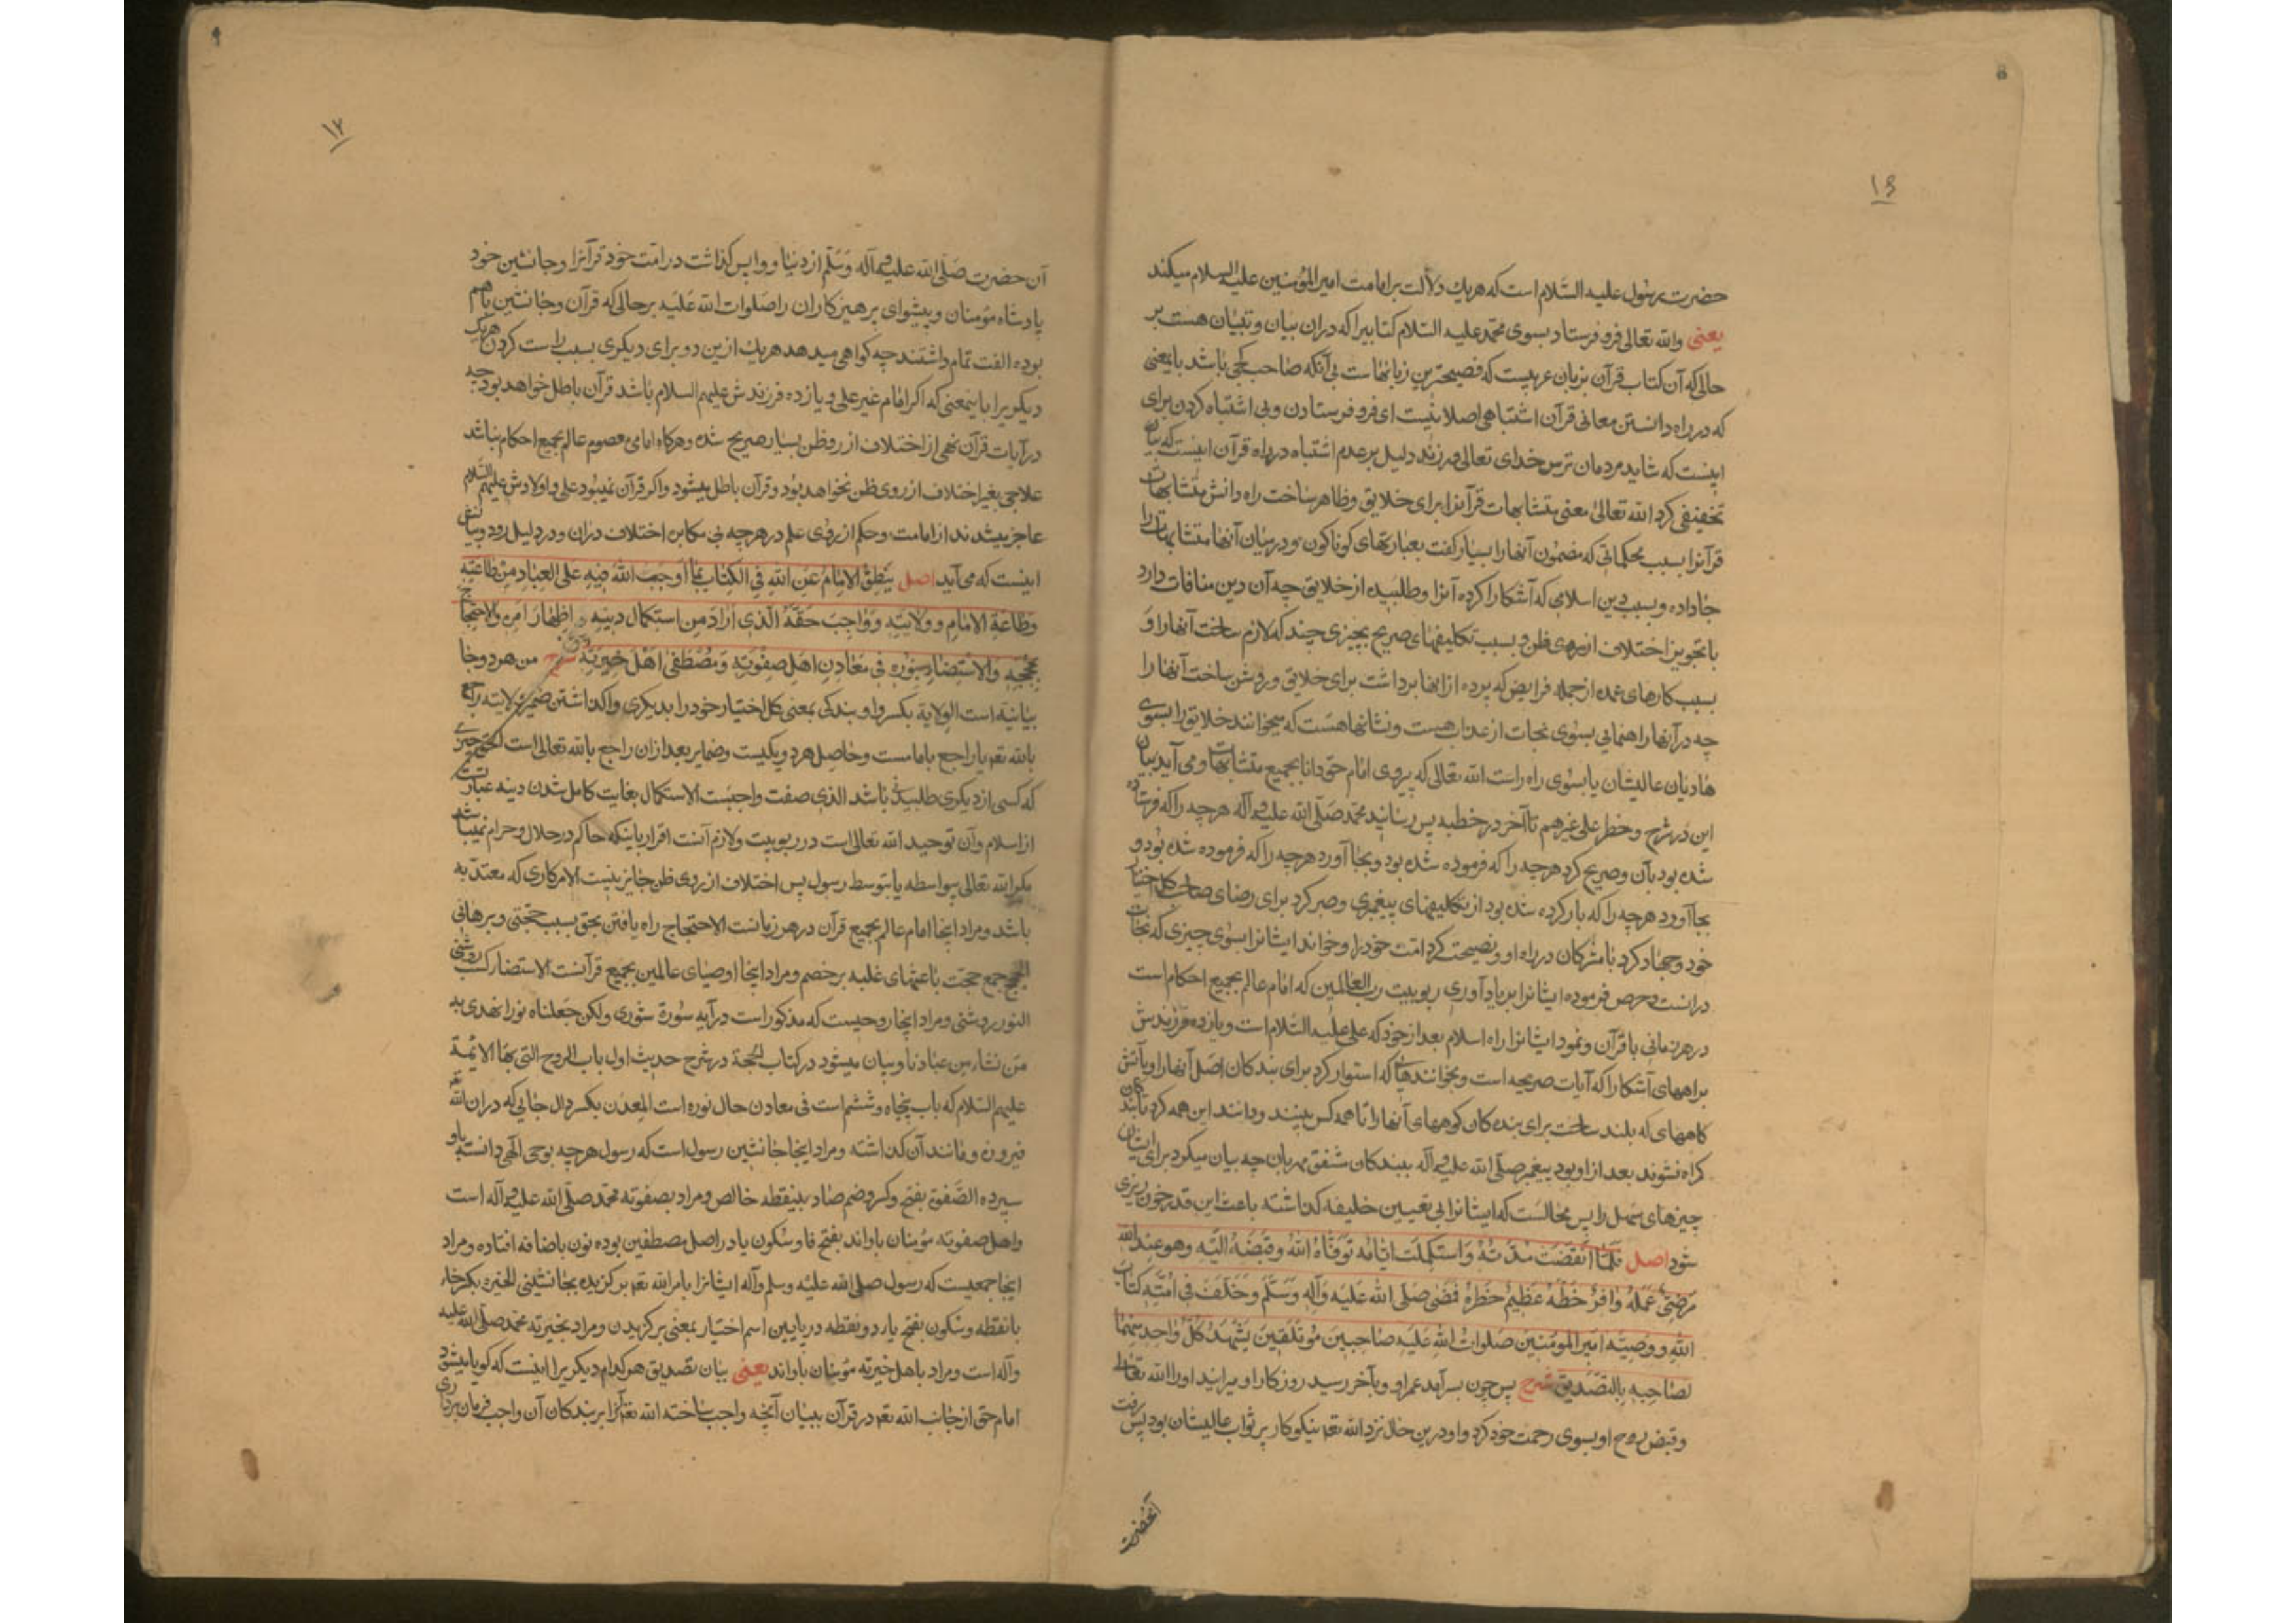 ۱۶
حضرت رسول علیه السّلام است که هریك دلالت بر امامت امیر المؤمنین علیه السلام میکند
یعنی والله تعالی فرو فرستاد بسوی محمّد علیه السّلام کتابیرا که دران بیان و تبیان هست بر
حالی که آن کتاب قرآن بزبان عربیست که فصیحترین زبانهاست بی آنکه صاحب کجی باشد باینمعنی
که در راه دانستن معانی قرآن اشتباهی اصلا نیست ای فرو فرستادن و بی اشتباه کردن برای
اینست که شاید مردمان ترس خدای تعالی ورزند دلیل بر عدم اشتباه در راه قرآن اینست که بیان
تخفیفی کرد الله تعالی معنی متشابهات قرآنرا برای خلایق و ظاهر ساخت راه دانش متشابهات
قرآنرا بسبب محکماتی که مضمون آنها را بسیار گفت بعبارتهای کوناکون و در میان آنها متشابهات را
جا داده و بسبب دین اسلامی که آشکارا کرده آنرا و طلبیده از خلایق چه آن دین منافات دارد
با تجویز اختلاف از روی ظن و بسبب تکلیفهای صریح بچیزی چند که لازم ساخت آنها را و
بسبب کارهای عمده از جمله فرایض که پرده از انها برداشت برای خلایق و روشن ساخت آنها را
چه در آنها راهنمایی بسوی نجات از عذاب هست و نشانها هست که میخوانند خلایق را بسوی
هادیان عالیشان یا بسوی راه راست الله تعالی که پیروی امام حق دانا بجمیع متشابهات و می آید بیان
این در شرح و خطر علی غیرهم تا آخر در خطبه پس رسانید محمّد صلّی الله علیه وآله هرچه را که فرستاده
شده بود بآن و صریح کرد هرچه را که فرموده شده بود و بجا آورد هرچه را که فرموده شده بود و
بجا آورد هرچه را که بار کرده شده بود از تکلیفهای پیغمبری و صبر کرد برای رضای صاحب کل اختیار
خود و جهاد کرد با مشرکان در راه او و نصیحت کرد امّت خود را و خواند ایشانرا بسوی چیزی که نجات
درانست و حرص فرموده ایشانرا بر یاد آوری ربوبیت رب العالمین که امام عالم بجمیع احکام است
در هر زمانی با قرآن و نمود ایشانرا راه اسلام بعد از خود که علی علیه السّلام است و یازده فرزندش
براههای آشکارا که آیات صریحه است و بخوانندهایی که استوار کرد برای بندکان اصل آنها را و بآتش
کاههای که بلند ساخت برای بنده کان کوههای آنها را تا همه کس بینند و دانند این همه کرد تا بندکان
کمراه نشوند بعد از او و بود پیغمبر صلّی الله علیه وآله ببندکان شفق مهربان چه بیان میکرد برای ایشان
چیزهای سهل را پس محالست که ایشانرا بی تعیین خلیفه کذاشته باعث این قدر خون ریزی
شود اصل فَلَمّا انقضَت مُدّتُهُ وَاستَکمَلَت ایّامُه تَوَفّاهُ اللهُ وَقَبَضَهُ اِلَیه وهو عِندَ اللهِ
مَرضِیٌّ عَمَلُهُ وَافِرٌ حَظُّهُ عَظِیمٌ خَطَرُهُ فَمَضی صَلَّی اللهُ عَلَیهِ وَآلِهِ وَسَلَّم وَخَلَّفَ فی اُمَّتِهِ کِتابَ
اللهِ وَوَصِیَّه امیرَ المؤمنین صلواتُ اللهِ عَلَیه صاحِبَینِ مُؤتَلِفَینِ یَشهَدُ کُلُّ واحِدٍ مِنهُما
لِصاحِبِهِ بِالتَّصدیق شرح پس چون بسر آمد عمر او و بآخر رسید روزکار او میرانید او را الله تعالی
و قبض روح او بسوی رحمت خود کرد و او درین حال نزد الله تعه نیکو کار پر ثواب عالیشان بود پس رفت
آنحضرت
۱۷
آن حضرت صَلّی الله علیه وآله وَسَلّم از دنیا و واپس کذاشت در امّت خود قرآنرا و جانشین خود
پادشاه مؤمنان و پیشوای پرهیزکاران را صلوات الله عَلَیه بر حالی که قرآن و جانشین باهم
بوده الفت تمام داشتند چه کواهی میدهد هریك ازین دو برای دیکری بسبب راست کردن هریک
دیکریرا باینمعنی که اکر امام غیر علی و یازده فرزندش علیهم السلام باشد قرآن باطل خواهد بود چه
در آیات قرآن نهی از اختلاف از رو ظن بسیار صریح شده و هرکاه امامی معصوم عالم بجمیع احکام نباشد
علاجی بغیر اختلاف از روی ظن نخواهد بود و قرآن باطل میشود و اکر قرآن نمیبود علی و اولادش علیهم السّلام
عاجز میشدند از امامت و حکم از روی علم در هرچه بی مکابره اختلاف دران و در دلیل رود و بیانش
اینست که می آید اصل یَنطِقُ الاِمامُ عَنِ اللهِ فِی الکِتابِ بِما اَوجَبَ اللهُ فیهِ عَلَی العِبادِ مِن طاعَتِهِ
وَطاعَةِ الاِمامِ وَوِلایَتِهِ وَواجِبِ حَقِّهِ الَّذی اَرادَ مِنِ استِکمالِ دینِهِ و اِظهارِ اَمرِه وَالاِحتِجاجِ
بِحُجَجِهِ وَالاِستِضاءةِ بِنُورِه فی مَعادِنِ اهلِ صَفوَتِهِ وَمُصطَفی اَهلِ خِیَرَتِهِ شرح من هر دو جا
بیانیّه است الولایة بکسر واو بندکی بمعنی کل اختیار خود را بدیکری واکذاشتن ضمیر ولایته راجع
بالله تعه یا راجع بامامست و حاصل هر دو یکیست و ضمایر بعد ازان راجع بالله تعالی است الحق چیزی
که کسی از دیکری طلبیده باشد الذی صفت واجبست الاستکمال بغایت کامل شدن دینه عبارتست
از اسلام و آن توحید الله تعالی است در ربوبیت و لازم آنست اقرار باینکه حاکم در حلال و حرام نمیباشد
مکر الله تعالی بیواسطه یا بتوسط رسول پس اختلاف از روی ظن جایز نیست الامر کاری که معتدّ به
باشد و مراد اینجا امام عالم بجمیع قرآن در هر زمانست الاحتجاج راه یافتن بحق بسبب حجّتی و برهانی
الحجج جمع حجّت باعثهای غلبه بر خصم و مراد اینجا اوصیای عالمین بجمیع قرآنست الاستضاءة کسب روشنی
النور روشنی و مراد اینجا روحیست که مذکور است در آیه سُورة شوری ولکن جَعلناه نورا نهدی به
مَن نشاء من عبادنا و بیان میشود در کتاب الحجة در شرح حدیث اول باب الروح التی بها الائمّة
علیهم السّلام که باب پنجاه و ششم است فی معادن حال نوره است المعدن بکسر دال جایی که دران الله تعه
فیروزه و مانند آن کذاشته و مراد اینجا جانشین رسول است که رسول هرچه بوحی الهی دانسته باو
سپرده الصّفوة بفتح و کسر و ضم صاد بینقطه خالص و مراد بصفوته محمّد صلّی الله علیه وآله است
و اهل صفوته مؤمنان باواند بفتح فا و سکون یا در اصل مصطفین بوده نون باضافه افتاده و مراد
اینجا جمعیست که رسول صلی الله علیه وسلم وآله ایشانرا بامر الله تعه برکزیده بجانشینی الخیره بکسر خاء
بانقطه و سکون بفتح یاء دو نقطه در پایین اسم اختیار بمعنی برکزیدن و مراد بخیرته محمّد صلّی الله علیه
وآله است و مراد باهل خیرته مؤمنان باواند یعنی بیان تصدیق هرکدام دیکریرا اینست که کویا میشود
امام حق از جانب الله تعه در قرآن ببیان آنچه واجب ساخته الله تعه آنرا بر بندکان آن واجب فرمان برداری